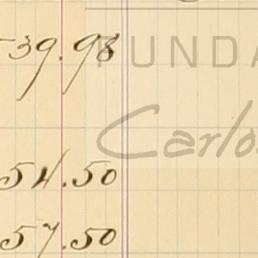 39.98
FUNDA
Carlo
54.50
57.50